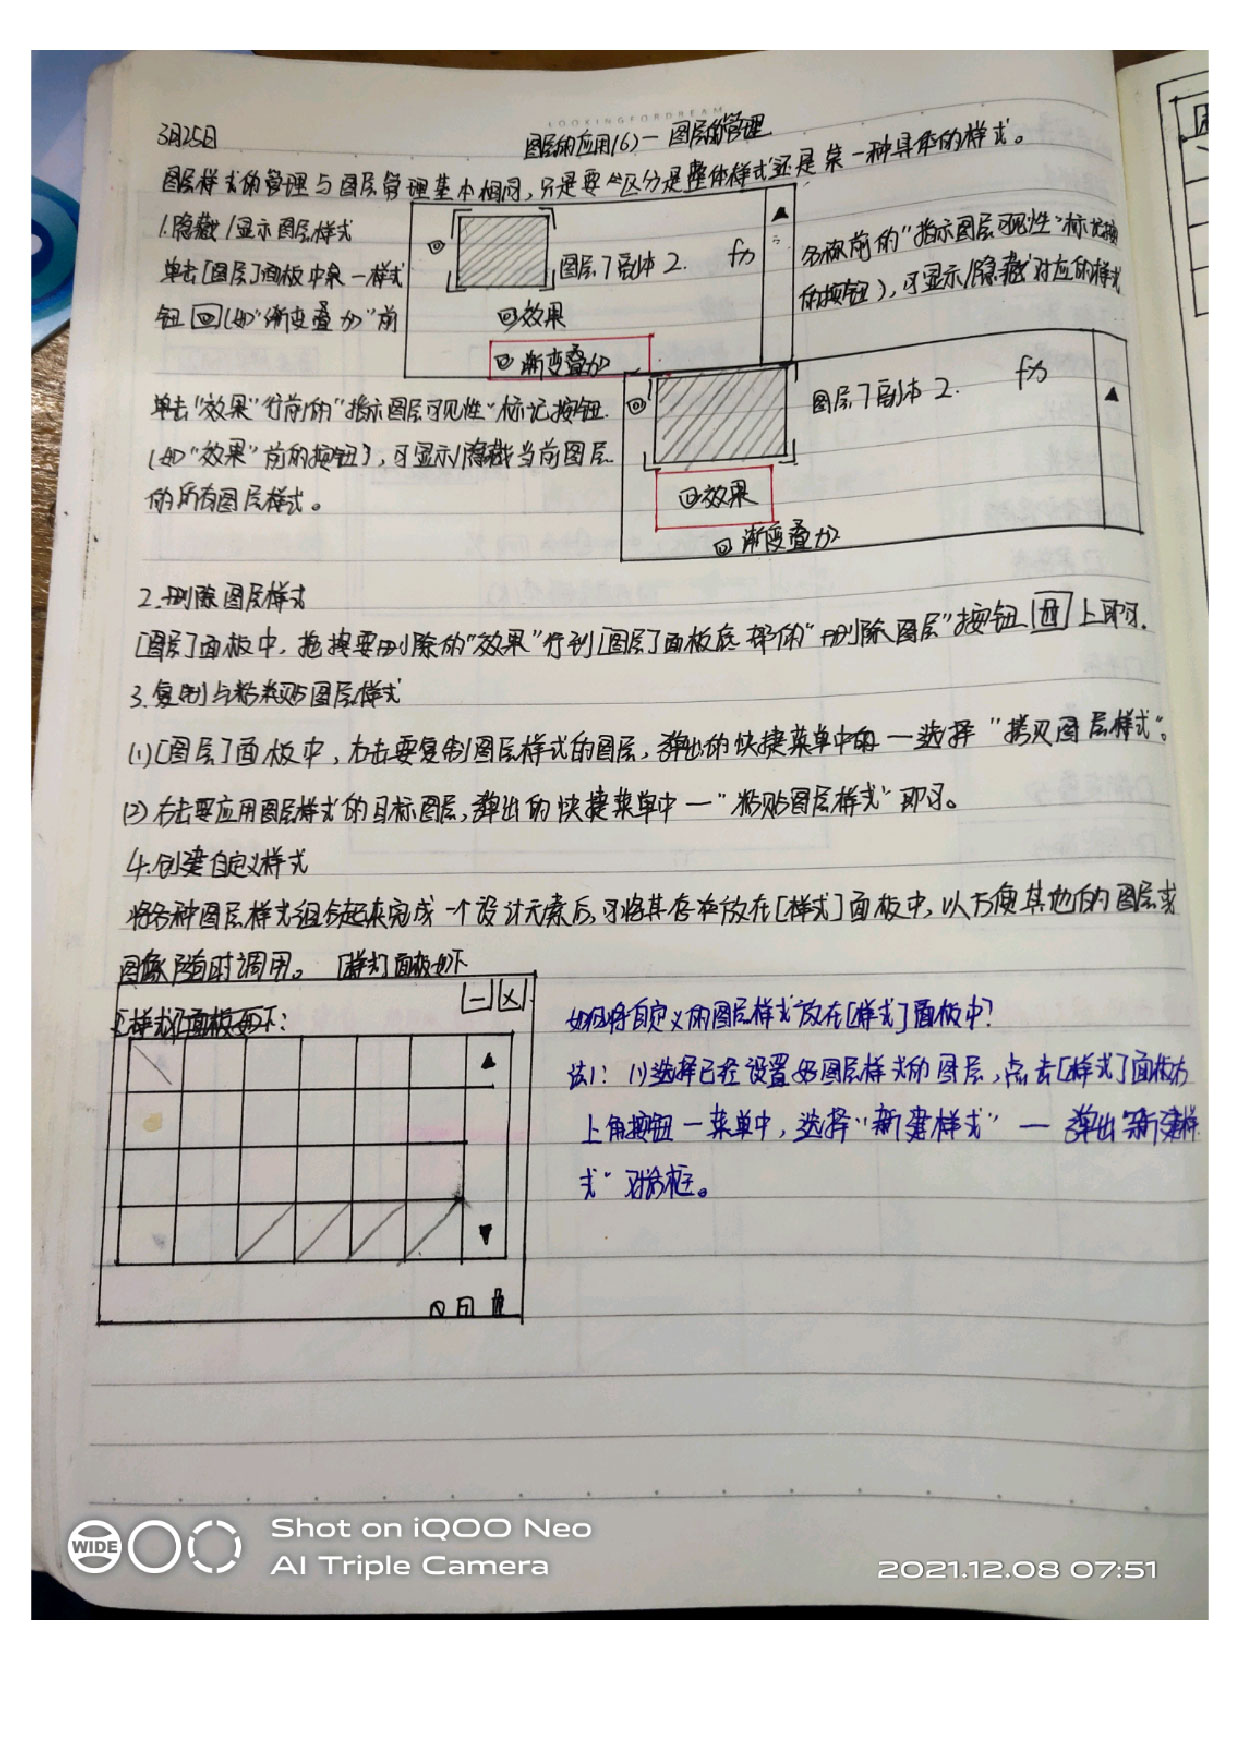 LOOKINGFORDREAM
3月25日
图层的应用(6)一图层的管理
图层样式的管理与图层管理基本相同,只是要区分是整体样式还是某一种具体的样式。
1.隐藏/显示图层样式
单击[图层]面板中某一样式
名称前的"指示图层可见性"标记按
钮(如"渐变叠加"前
的按钮),可显示/隐藏对应的样式
图层7副本2.
fx
效果
渐变叠加
单击"效果"行前的"指示图层可见性"标记按钮
(如"效果"前的按钮),可显示/隐藏当前图层
的所有图层样式。
图层7副本2.
fx
效果
渐变叠加
2.删除图层样式
[图层]面板中,拖拽要删除的"效果"行到[图层]面板底部的"删除图层"按钮上即可.
3.复制与粘贴图层样式
(1)[图层]面板中,右击要复制图层样式的图层,弹出的快捷菜单中一选择"拷贝图层样式"。
(2)右击要应用图层样式的目标图层,弹出的快捷菜单中一"粘贴图层样式"即可。
4.创建自定义样式
将各种图层样式组合起来完成一个设计元素后,可将其存放在[样式]面板中,以方便其他的图层或
图像随时调用。 [样式]面板如下
[样式]面板如下:
如何将自定义的图层样式放在[样式]面板中?
法1:(1)选择已经设置好图层样式的图层,点击[样式]面板右
上角按钮一菜单中,选择"新建样式"一弹出"新建样
式"对话框。
WIDE
Shot on iQOO Neo
AI Triple Camera
2021.12.08 07:51